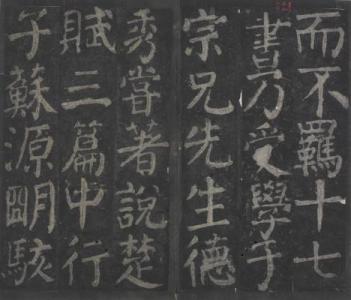 而不羈十七
書乃受學于
宗兄先生德
秀嘗著說楚
賦三篇中行
子蘇源明駭